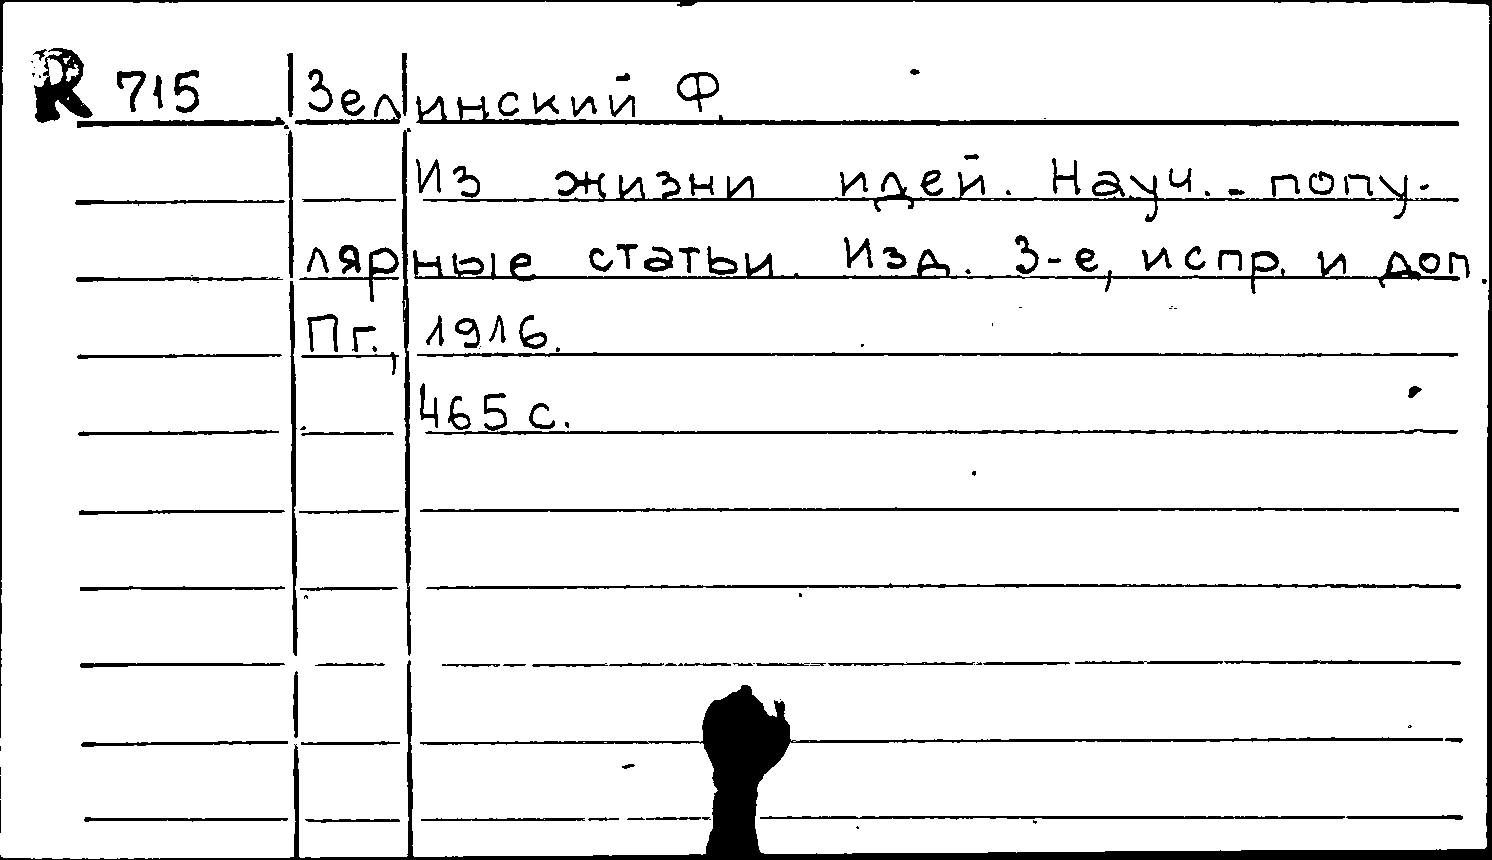 R 715 Зелинский Ф.
Из жизни идей. Науч.-попу-
лярные статьи. Изд. 3-е, испр. и доп.
Пг., 1916.
465 с.